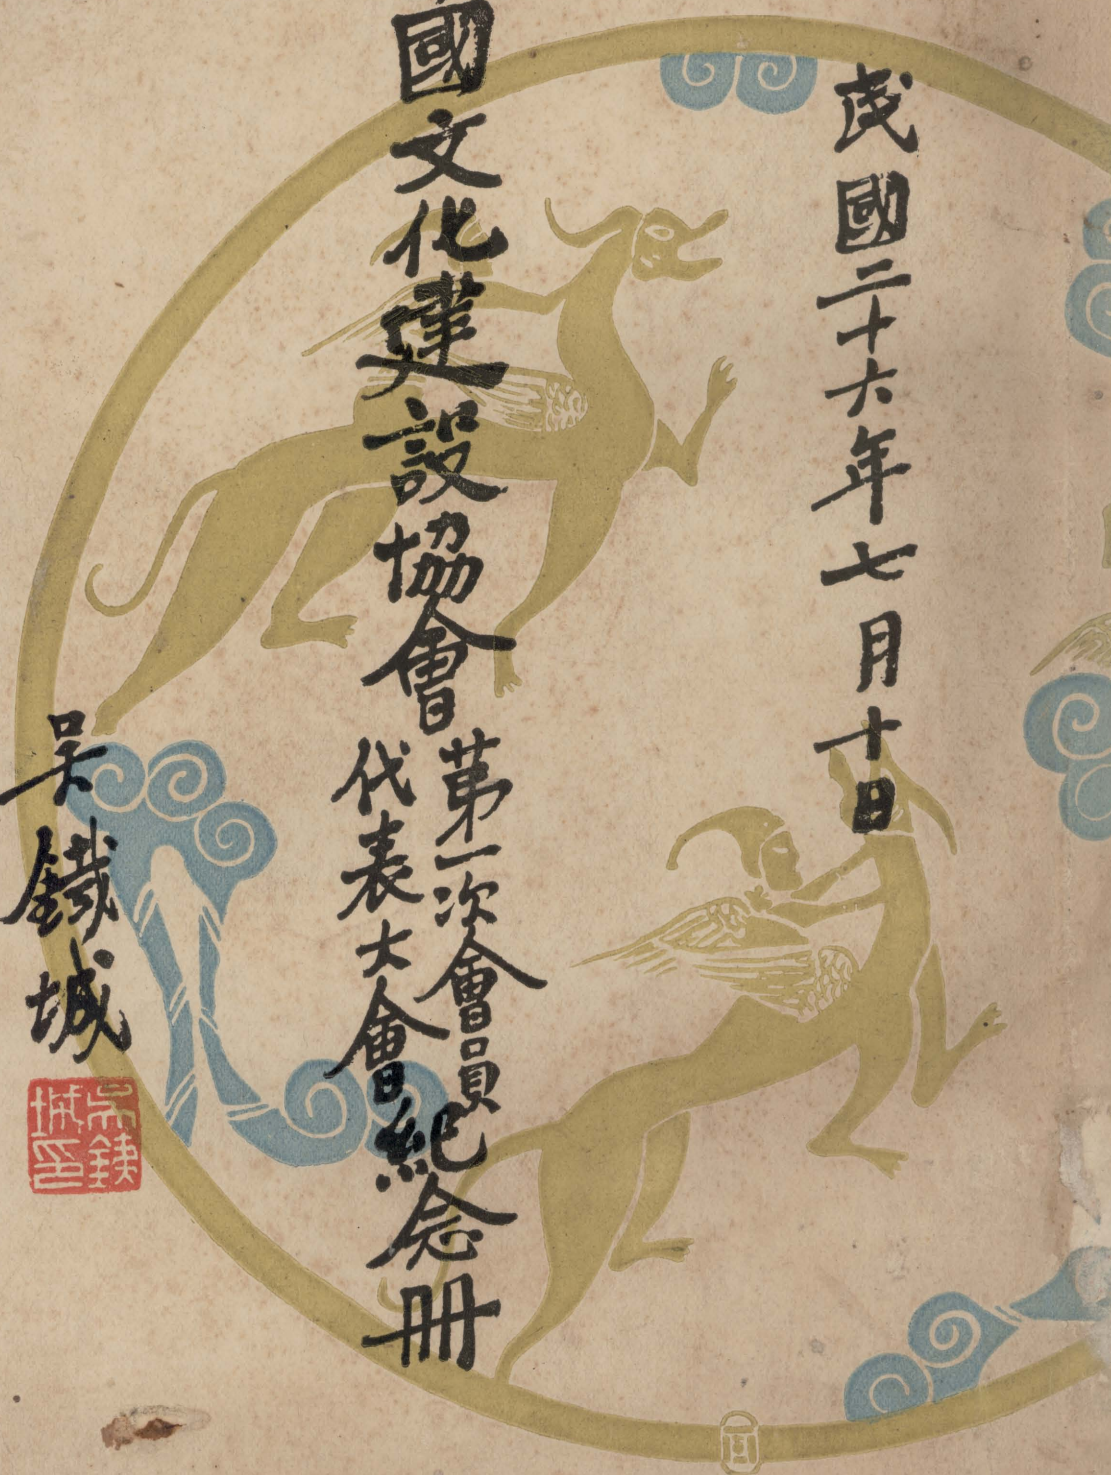 民國二十六年七月十日
國文化建設協會
第一次會員
代表大會
紀念冊
吳鐵城
吳鐵城印